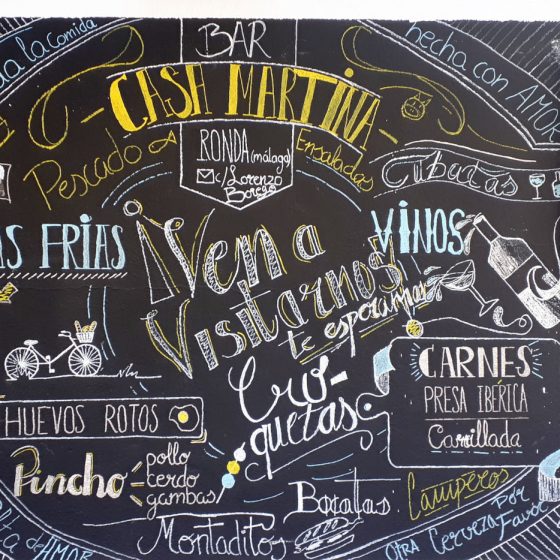 la comida
BAR
hecha con AMOR
CASA MARTINA
Pescado
RONDA (málaga)
c/ Lorenzo
Borrego
Ensaladas
Cubatas
AS FRIAS
¡Ven a
Visitarnos!
te esperamos
VINOS
Cro-
quetas
CARNES
PRESA IBÉRICA
Carrillada
HUEVOS ROTOS
Pincho
pollo
cerdo
gambas
Batatas
Montaditos
Camperos
Otra Cerveza Por
Favor
de AMOR